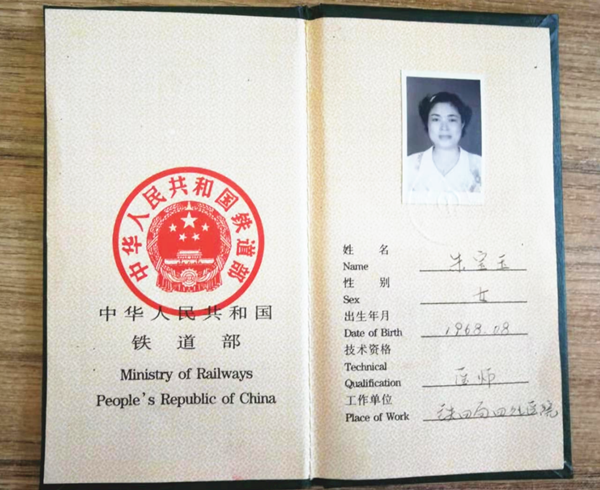 中华人民共和国铁道部
中华人民共和国
铁道部
Ministry of Railways
People's Republic of China
姓名
Name 朱宝玉
性别
Sex 女
出生年月
Date of Birth 1968.08
技术资格
Technical
Qualification 医师
工作单位
Place of Work 铁四局四处医院